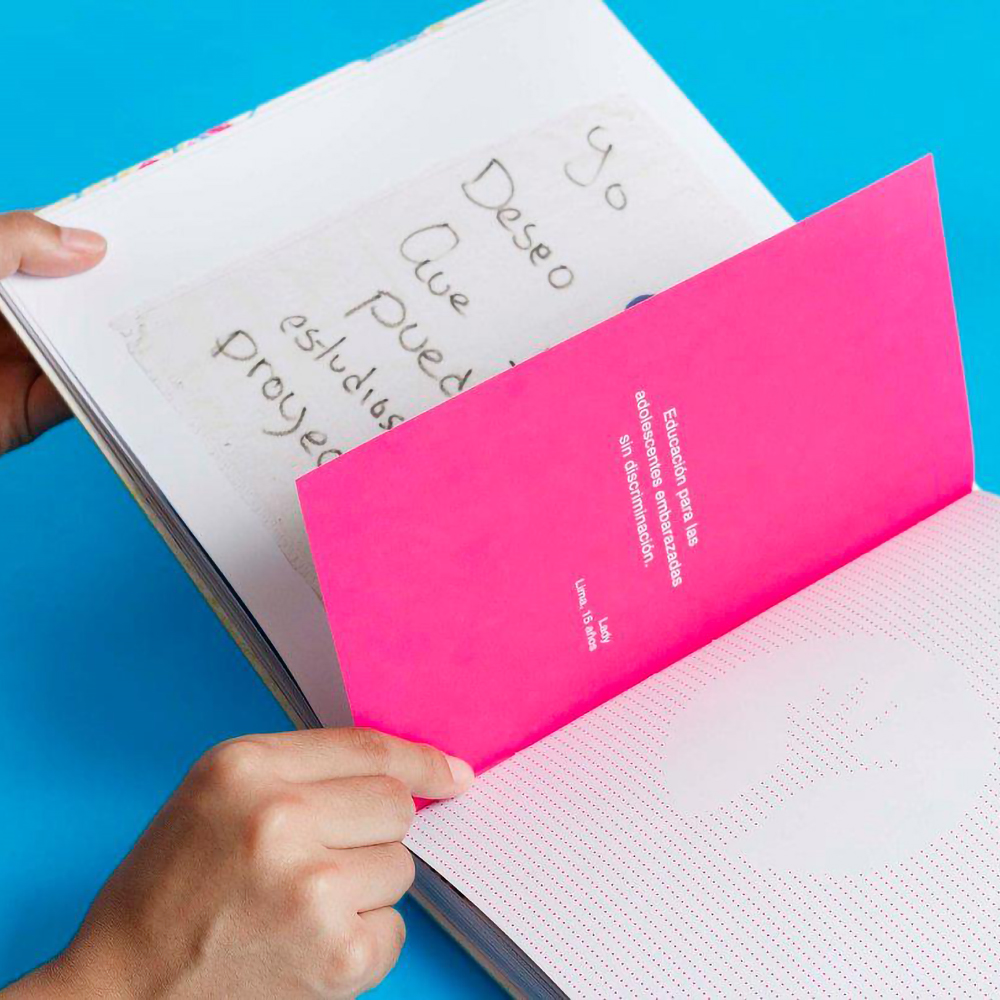 yo
Deseo
Que
pued
estudios
proyec
Educación para las
adolescentes embarazadas
sin discriminación.
Lady
Lima, 15 años